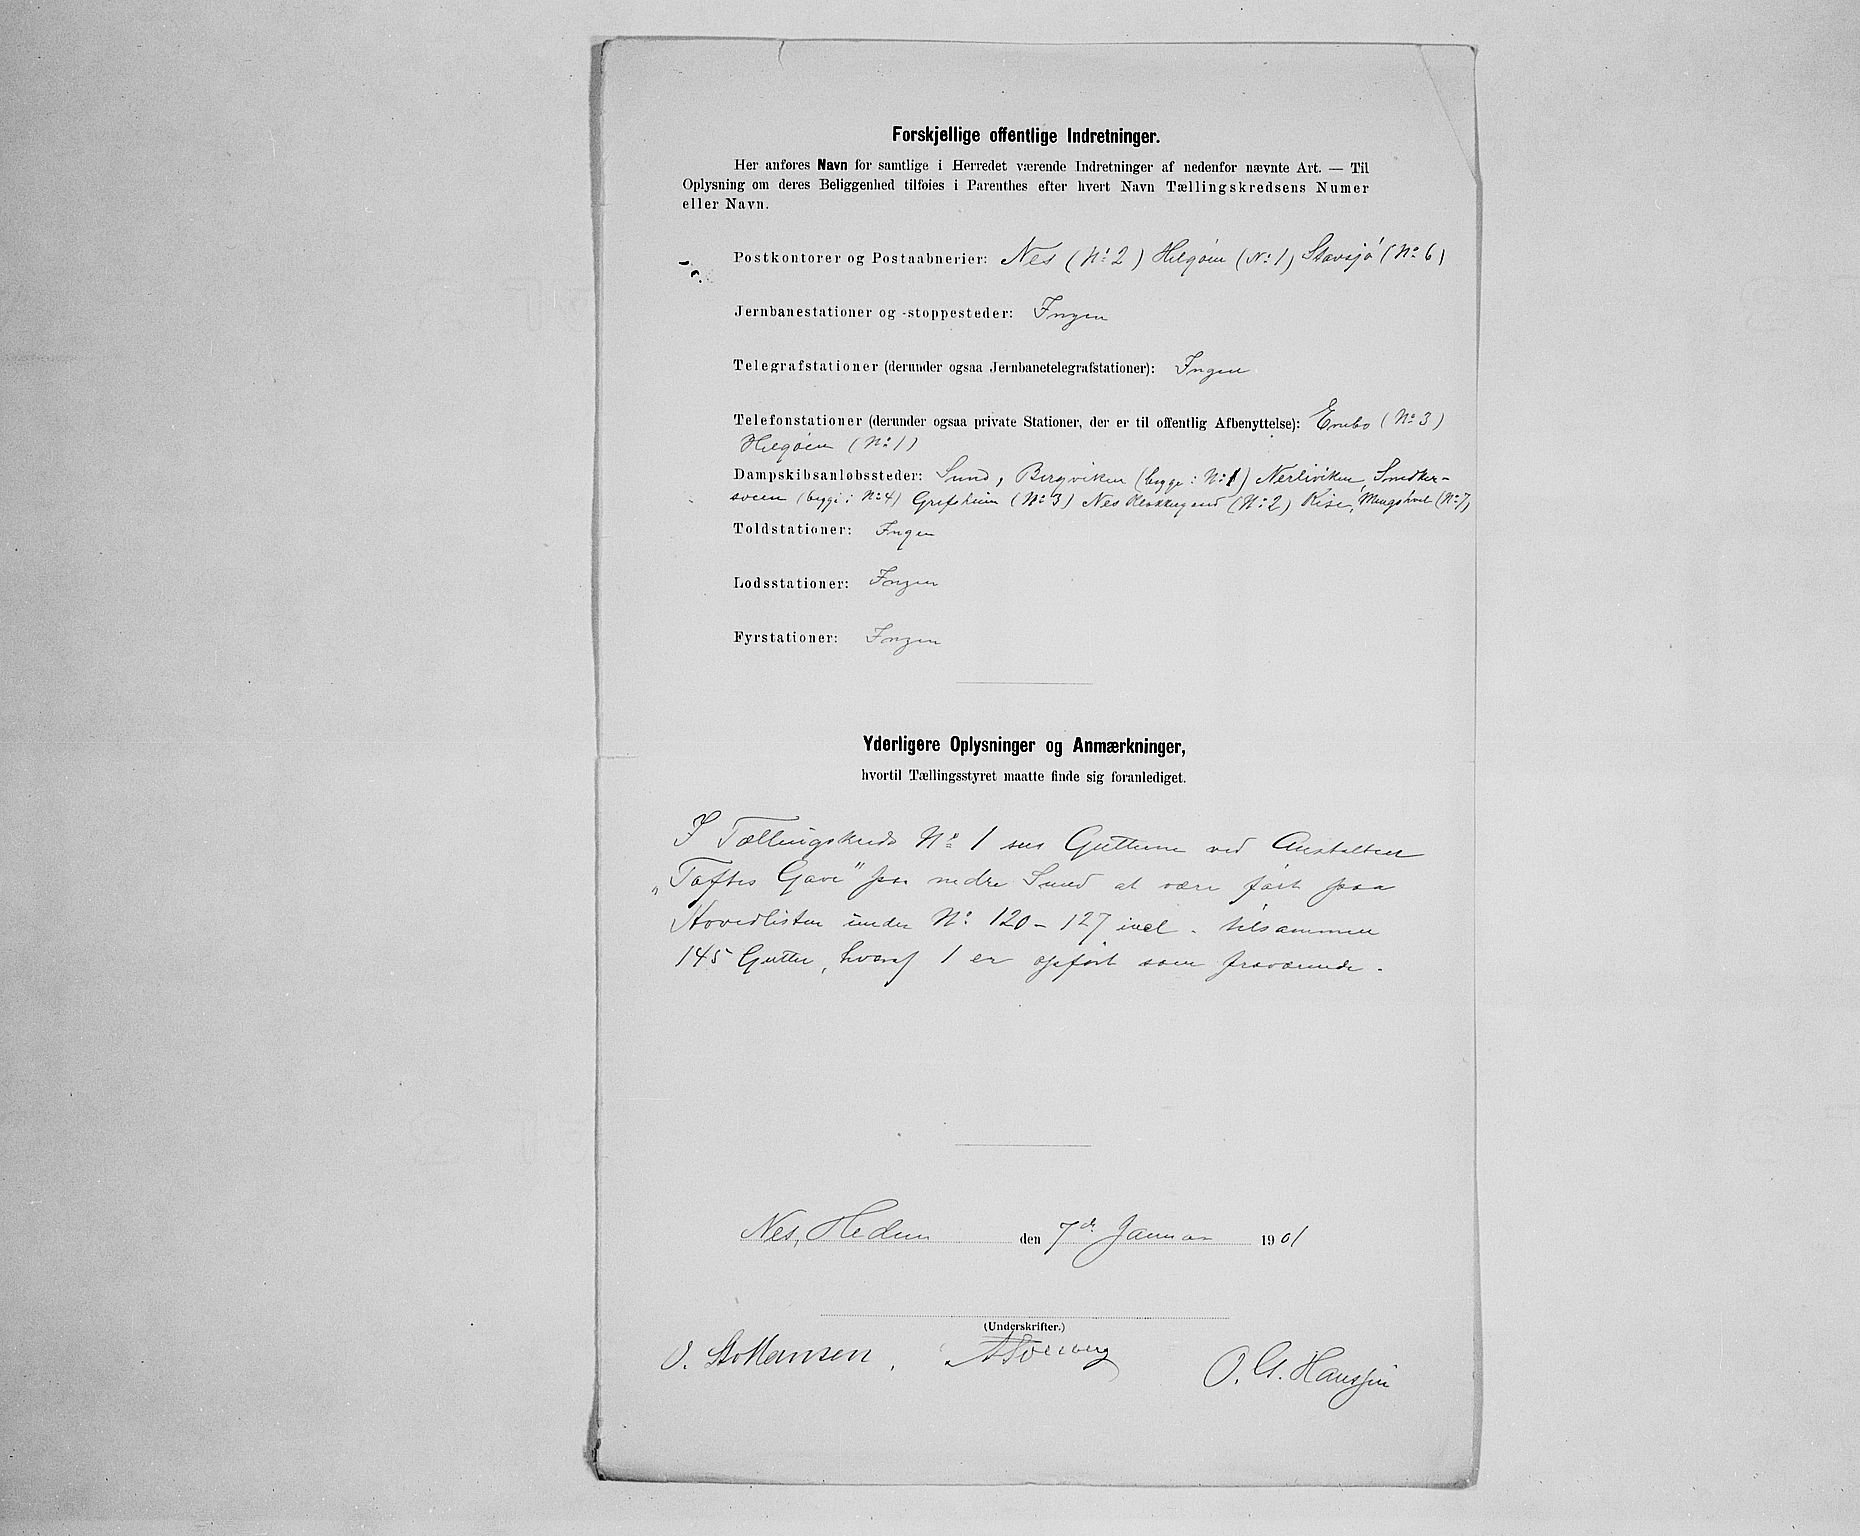 Forskjellige offentlige Indretninger.
Her anføres Navn for samtlige i Herredet værende Indretninger af nedenfor nævnte Art. — Til
Oplysning om deres Beliggenhed tilføies i Parenthes efter hvert Navn Tællingskredsens Numer
eller Navn.
Postkontorer og Postaabnerier: Nes (No 2) Helgøen (No 1) Stavsjø (No 6)
Jernbanestationer og -stoppesteder: Ingen
Telegrafstationer (derunder ogsaa Jernbanetelegrafstationer): Ingen
Telefonstationer (derunder ogsaa private Stationer, der er til offentlig Afbenyttelse): (No 3)
Helgøen (No 1)
Dampskibsanløbssteder: Sund, Bergviken (begge i No 1) Nerliviken,
(begge i No 4) (No 3) Nes (No 2) Rise, (No 7)
Toldstationer: Ingen
Lodsstationer: Ingen
Fyrstationer: Ingen
Yderligere Oplysninger og Anmærkninger,
hvortil Tællingsstyret maatte finde sig foranlediget.
I Tællingskreds No 1 sees Guttene ved Anstalten
„Toftes Gave” paa nedre Sund at være ført paa
Hovedlisten under No 120 - 127 incl. tilsammen
145 Gutter, hvoraf 1 er opført som fraværende.
Nes, Hedem den 7de Januar 1901
(Underskrifter.)
O. G. Hanssen